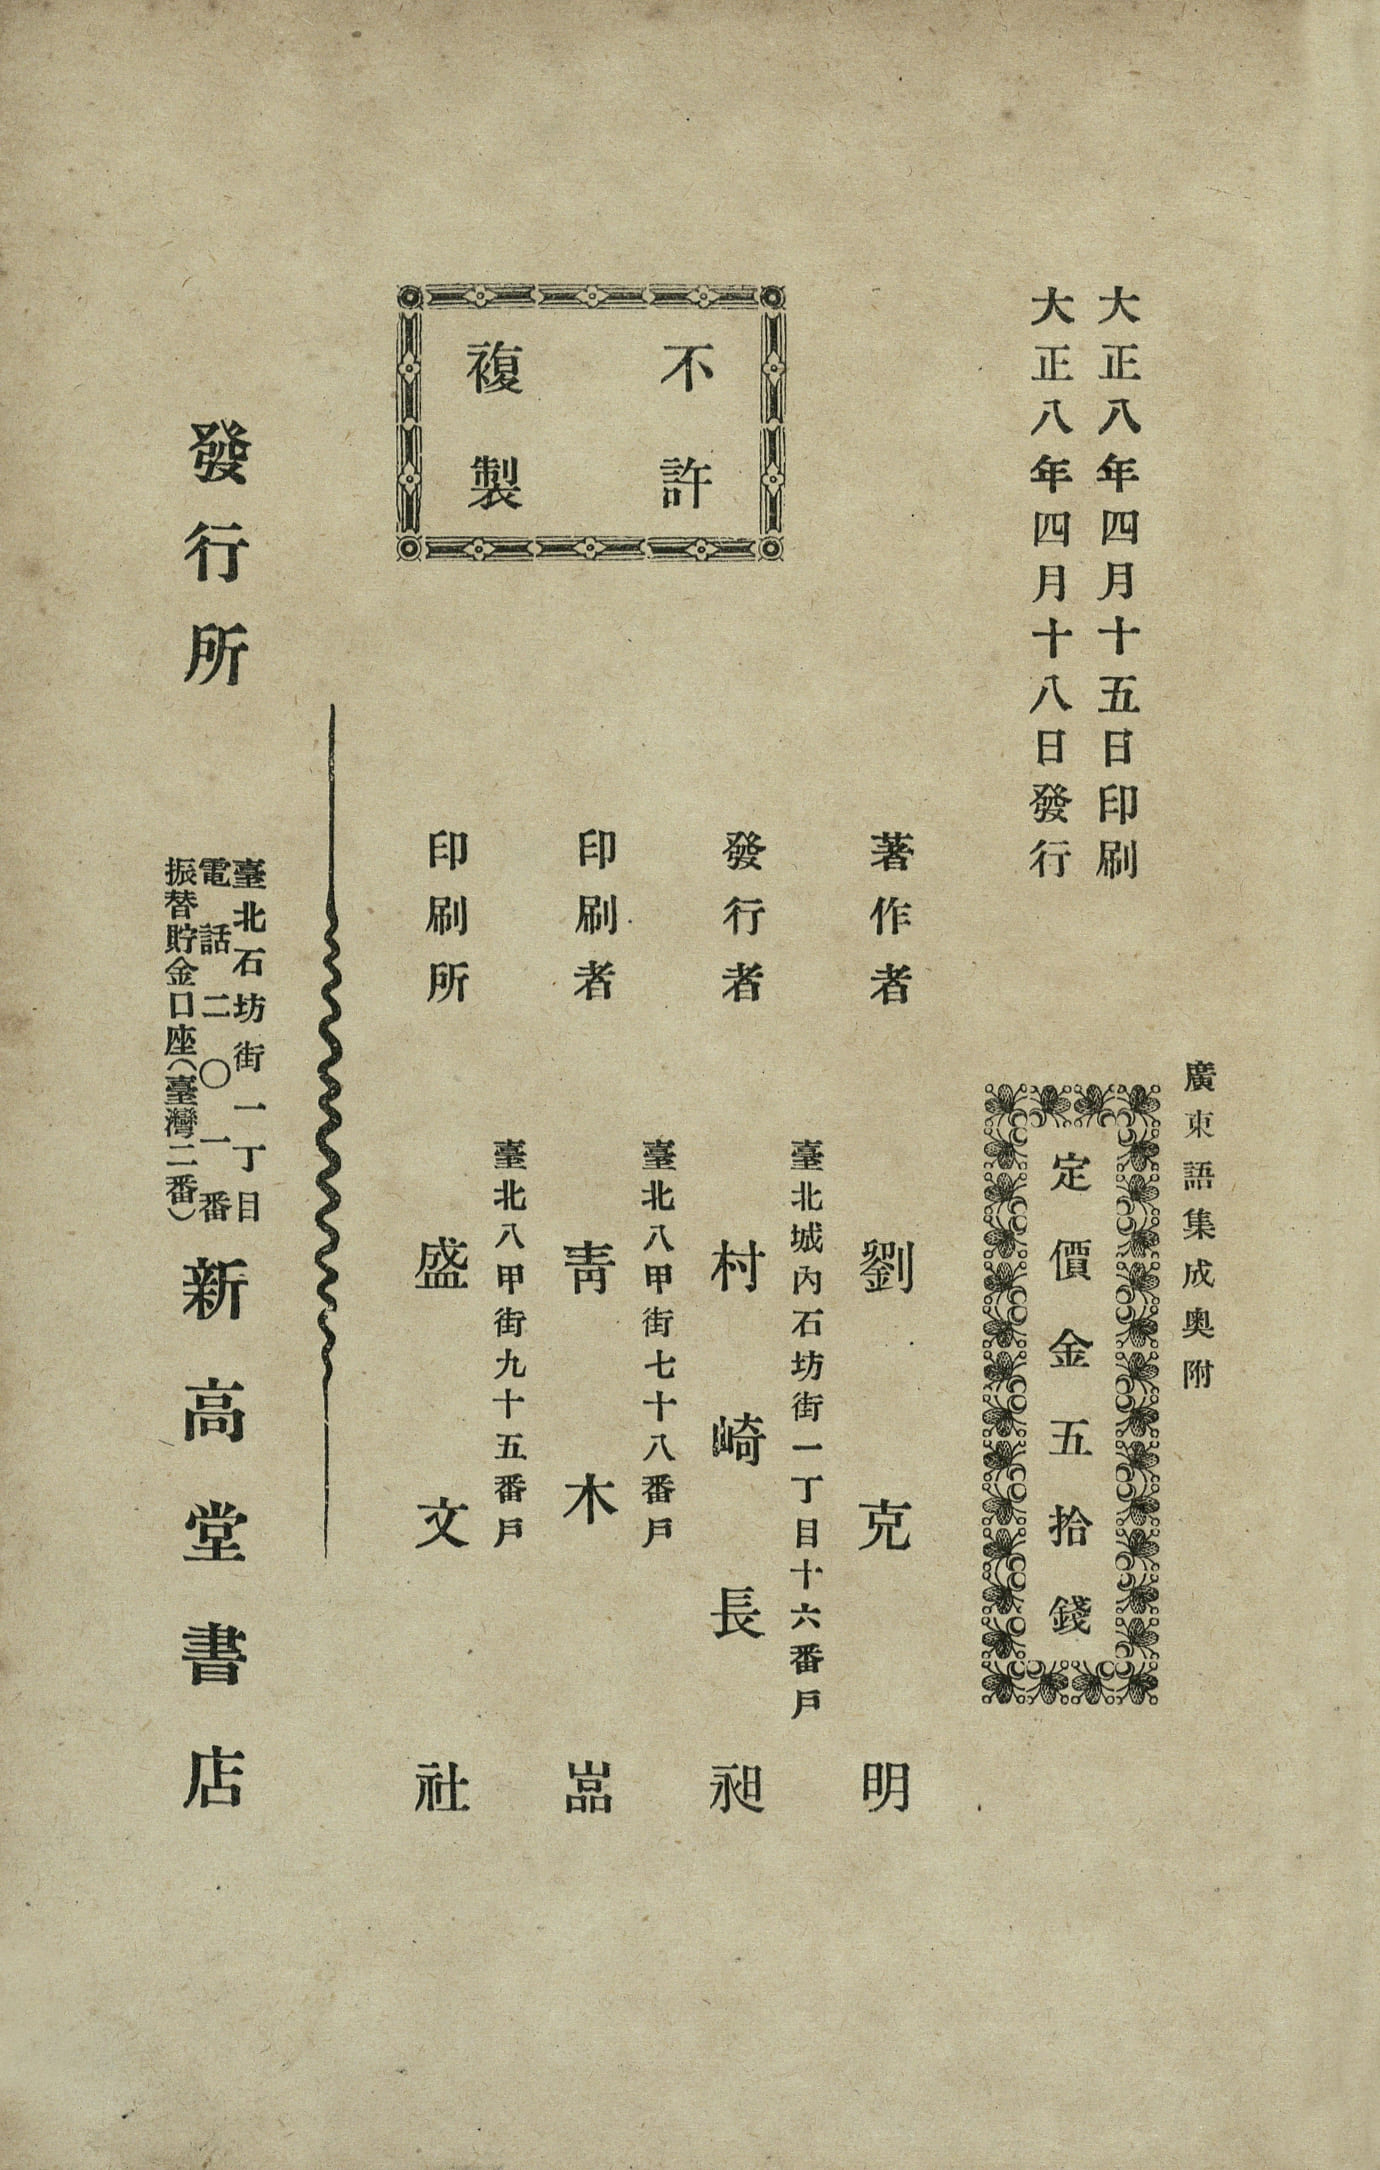 廣東語集成奥附
大正八年四月十五日印刷
大正八年四月十八日發行
定價金五拾錢
不許
複製
著作者 劉克明
臺北城內石坊街一丁目十六番戶
發行者 村崎長昶
臺北八甲街七十八番戶
印刷者 靑木嵓
臺北八甲街九十五番戶
印刷所 盛文社
發行所
臺北石坊街一丁目
電話二〇一番
振替貯金口座(臺灣二番)
新高堂書店